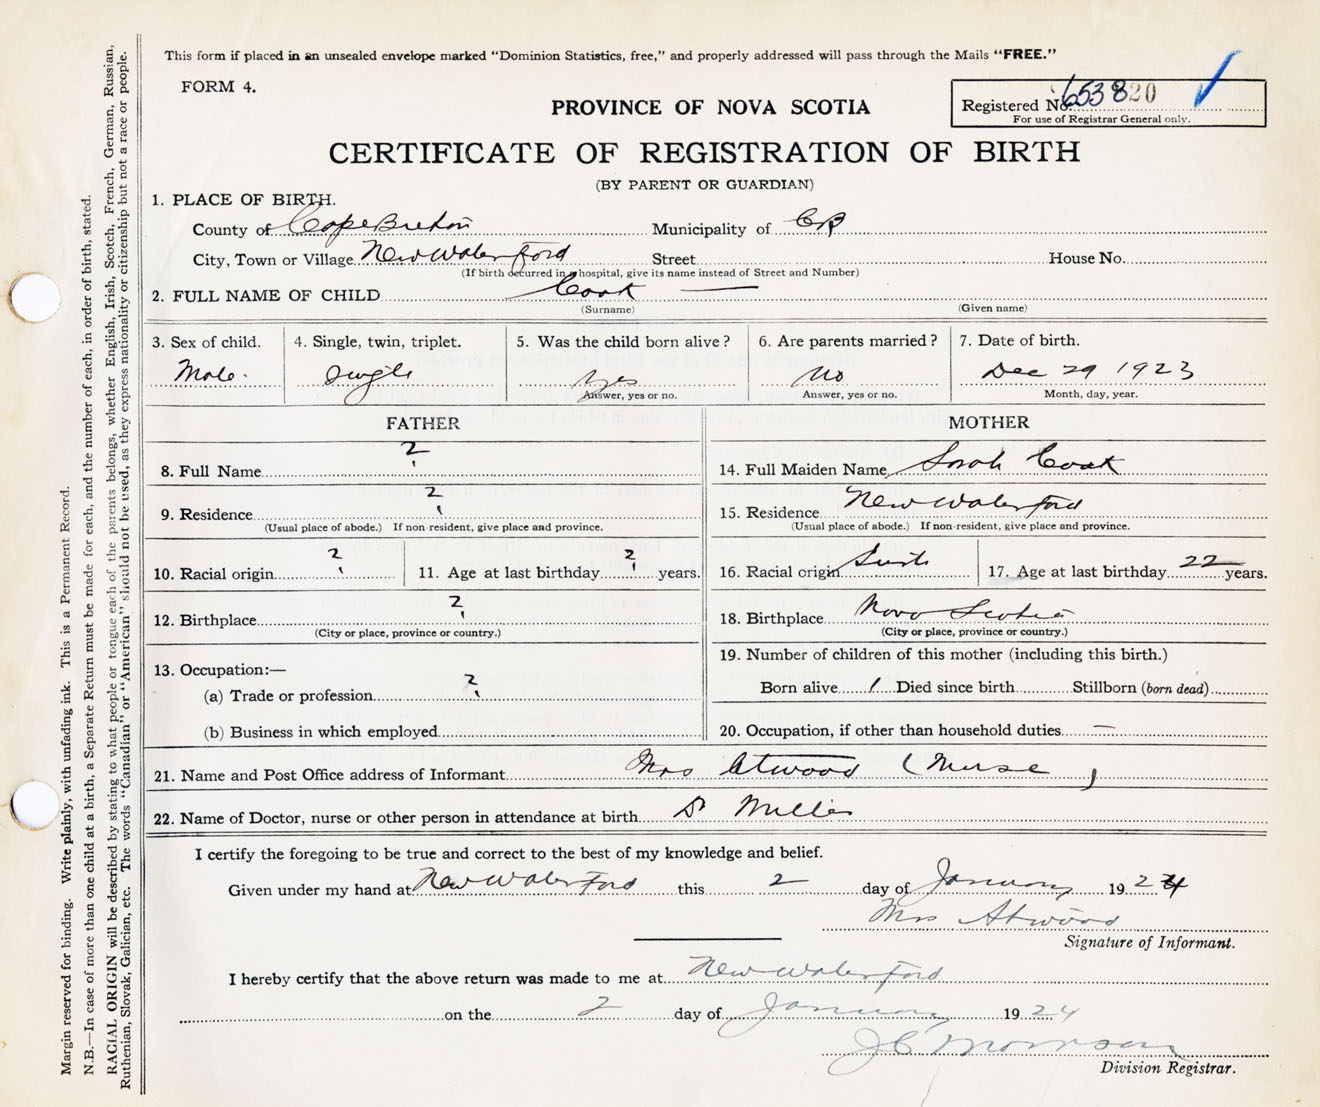 This form if placed in an unsealed envelope marked "Dominion Statistics, free," and properly addressed will pass through the Mails "FREE."
FORM 4.
PROVINCE OF NOVA SCOTIA
Registered No. 653820
For use of Registrar General only.
CERTIFICATE OF REGISTRATION OF BIRTH
(BY PARENT OR GUARDIAN)
1. PLACE OF BIRTH.
County of Cape Breton Municipality of CB
City, Town or Village New Waterford Street House No.
(If birth occurred in hospital, give its name instead of Street and Number)
2. FULL NAME OF CHILD Cook —
(Surname) (Given name)
3. Sex of child. 4. Single, twin, triplet. 5. Was the child born alive? 6. Are parents married? 7. Date of birth.
Male. Single Yes No Dec 29 1923
Answer, yes or no. Answer, yes or no. Month, day, year.
FATHER MOTHER
8. Full Name ? 14. Full Maiden Name Sarah Cook
9. Residence ? 15. Residence New Waterford
(Usual place of abode.) If non-resident, give place and province. (Usual place of abode.) If non-resident, give place and province.
10. Racial origin ? 11. Age at last birthday ? years. 16. Racial origin 17. Age at last birthday 22 years.
12. Birthplace ? 18. Birthplace Nova Scotia
(City or place, province or country.) (City or place, province or country.)
13. Occupation:— 19. Number of children of this mother (including this birth.)
(a) Trade or profession ? Born alive 1 Died since birth Stillborn (born dead)
(b) Business in which employed 20. Occupation, if other than household duties —
21. Name and Post Office address of Informant Mrs Atwood (Nurse)
22. Name of Doctor, nurse or other person in attendance at birth Dr
I certify the foregoing to be true and correct to the best of my knowledge and belief.
Given under my hand at New Waterford this 2 day of January 1924
Mrs Atwood
Signature of Informant.
I hereby certify that the above return was made to me at New Waterford
on the 2 day of January 1924
J C Morrison
Division Registrar.
Margin reserved for binding. Write plainly, with unfading ink. This is a Permanent Record.
N.B.—In case of more than one child at a birth, a Separate Return must be made for each, and the number of each, in order of birth, stated.
RACIAL ORIGIN will be described by stating to what people or tongue each of the parents belongs, whether English, Irish, Scotch, French, German, Russian,
Ruthenian, Slovak, Galician, etc. The words "Canadian" or "American" should not be used, as they express nationality or citizenship but not a race or people.